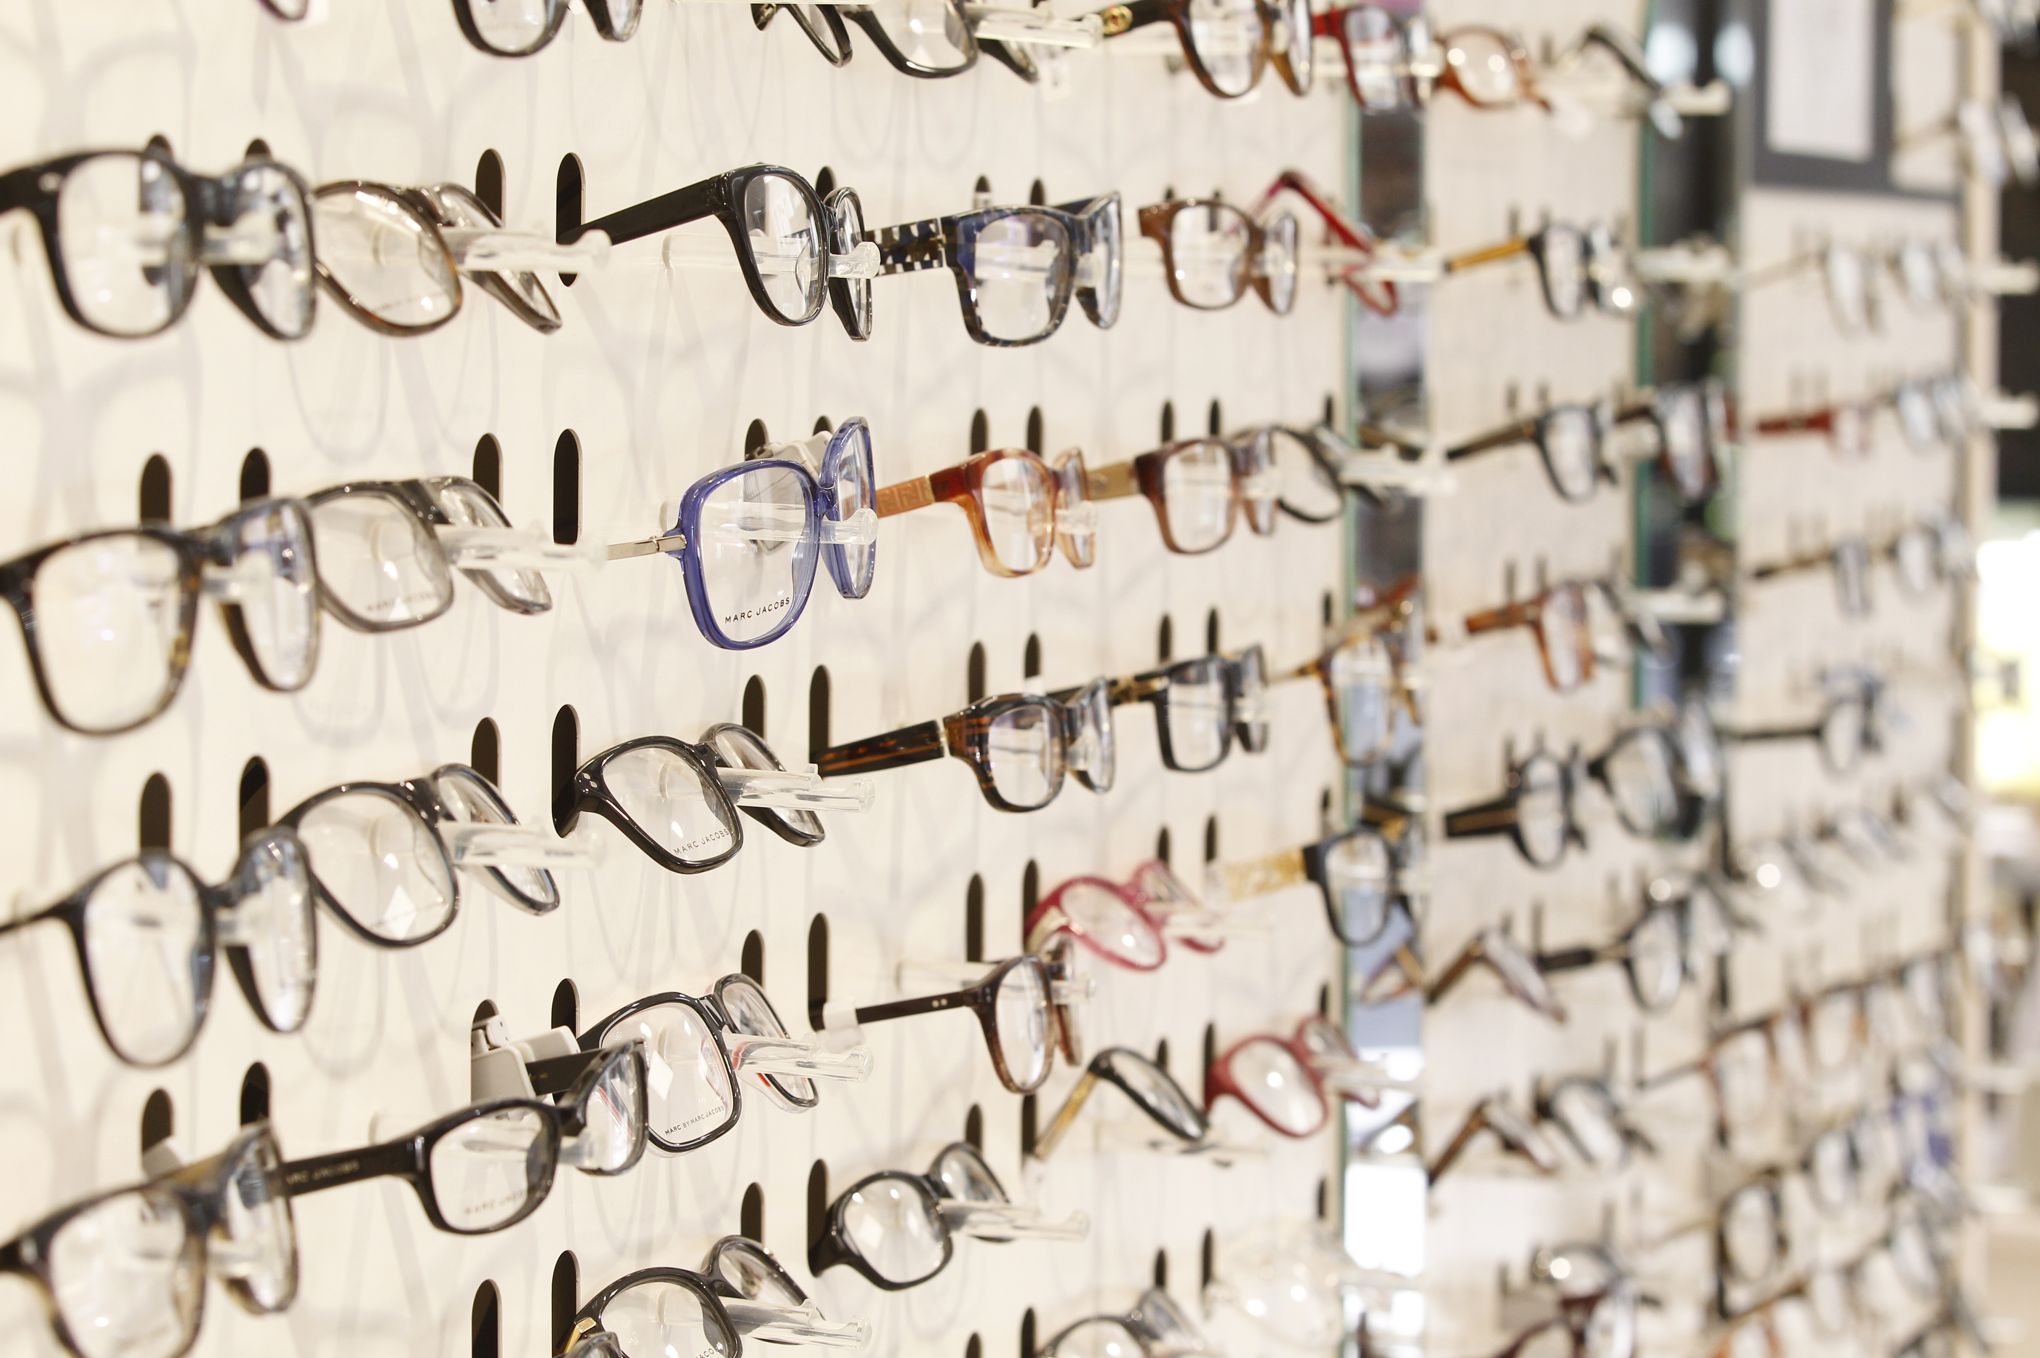 MARC JACOBS
MARC JACOBS
MARC BY MARC JACOBS
MARC JACOBS
MARC JACOBS